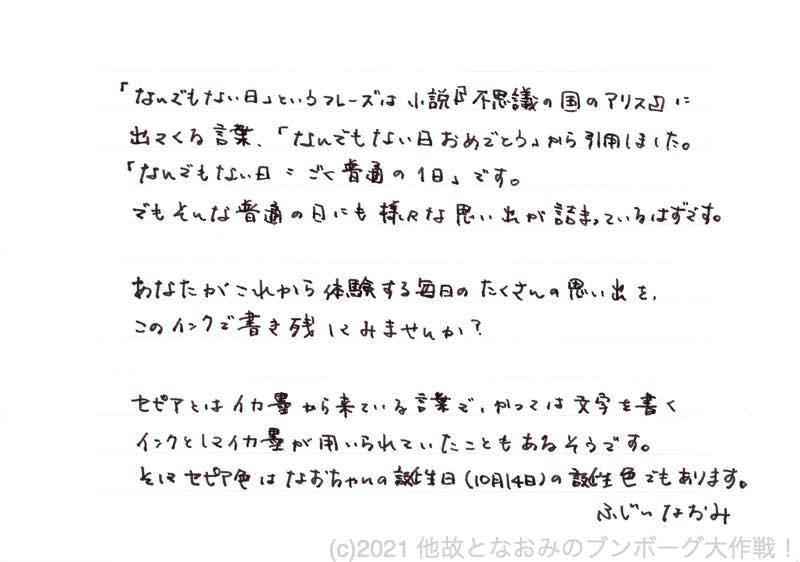 「なんでもない日」というフレーズは小説『不思議の国のアリス』に
出てくる言葉、「なんでもない日おめでとう」から引用しました。
「なんでもない日＝ごく普通の1日」です。
でもそんな普通の日にも様々な思い出が詰まっているはずです。
あなたがこれから体験する毎日のたくさんの思い出を、
このインクで書き残してみませんか？
セピアとはイカ墨から来ている言葉で、かつては文字を書く
インクとしてイカ墨が用いられていたこともあるそうです。
そしてセピア色はなおちゃんの誕生日(10月14日)の誕生色でもあります。
ふじいなおみ
(c)2021 他故となおみのブンボーグ大作戦！